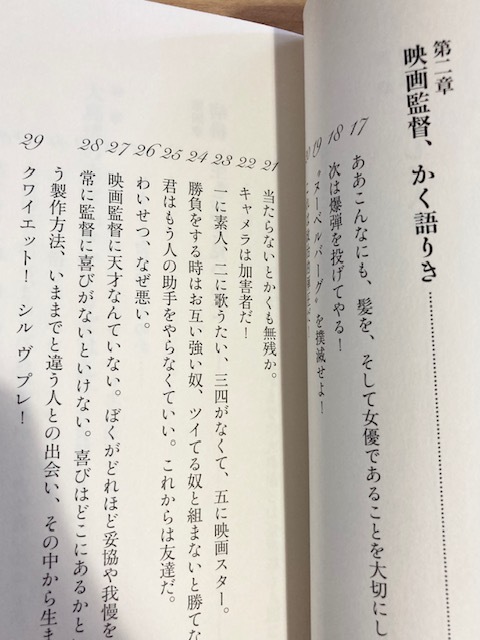 第二章
映画監督、かく語りき
17 ああこんなにも、髪を、そして女優であることを大切にし
18 次は爆弾を投げてやる!
19 “ヌーベルバーグ”を撲滅せよ!
21 当たらないとかくも無残か。
22 キャメラは加害者だ!
23 一に素人、二に歌うたい、三四がなくて、五に映画スター。
24 勝負をする時はお互い強い奴、ツイてる奴と組まないと勝てな
25 君はもう人の助手をやらなくていい。これからは友達だ。
26 わいせつ、なぜ悪い。
27 映画監督に天才なんていない。ぼくがどれほど妥協や我慢を
28 常に監督に喜びがないといけない。喜びはどこにあるかと
う製作方法、いままでと違う人との出会い、その中から生ま
29 クワイエット! シル ヴ プレ!